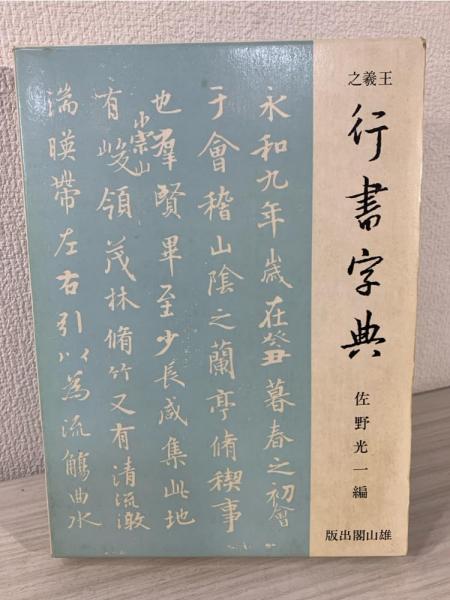 王羲之
行書字典
佐野光一編
雄山閣出版
永和九年歲在癸丑暮春之初會
于會稽山陰之蘭亭脩稧事
也羣賢畢至少長咸集此地
有崇山峻領茂林脩竹又有清流激
湍暎帶左右引以為流觴曲水